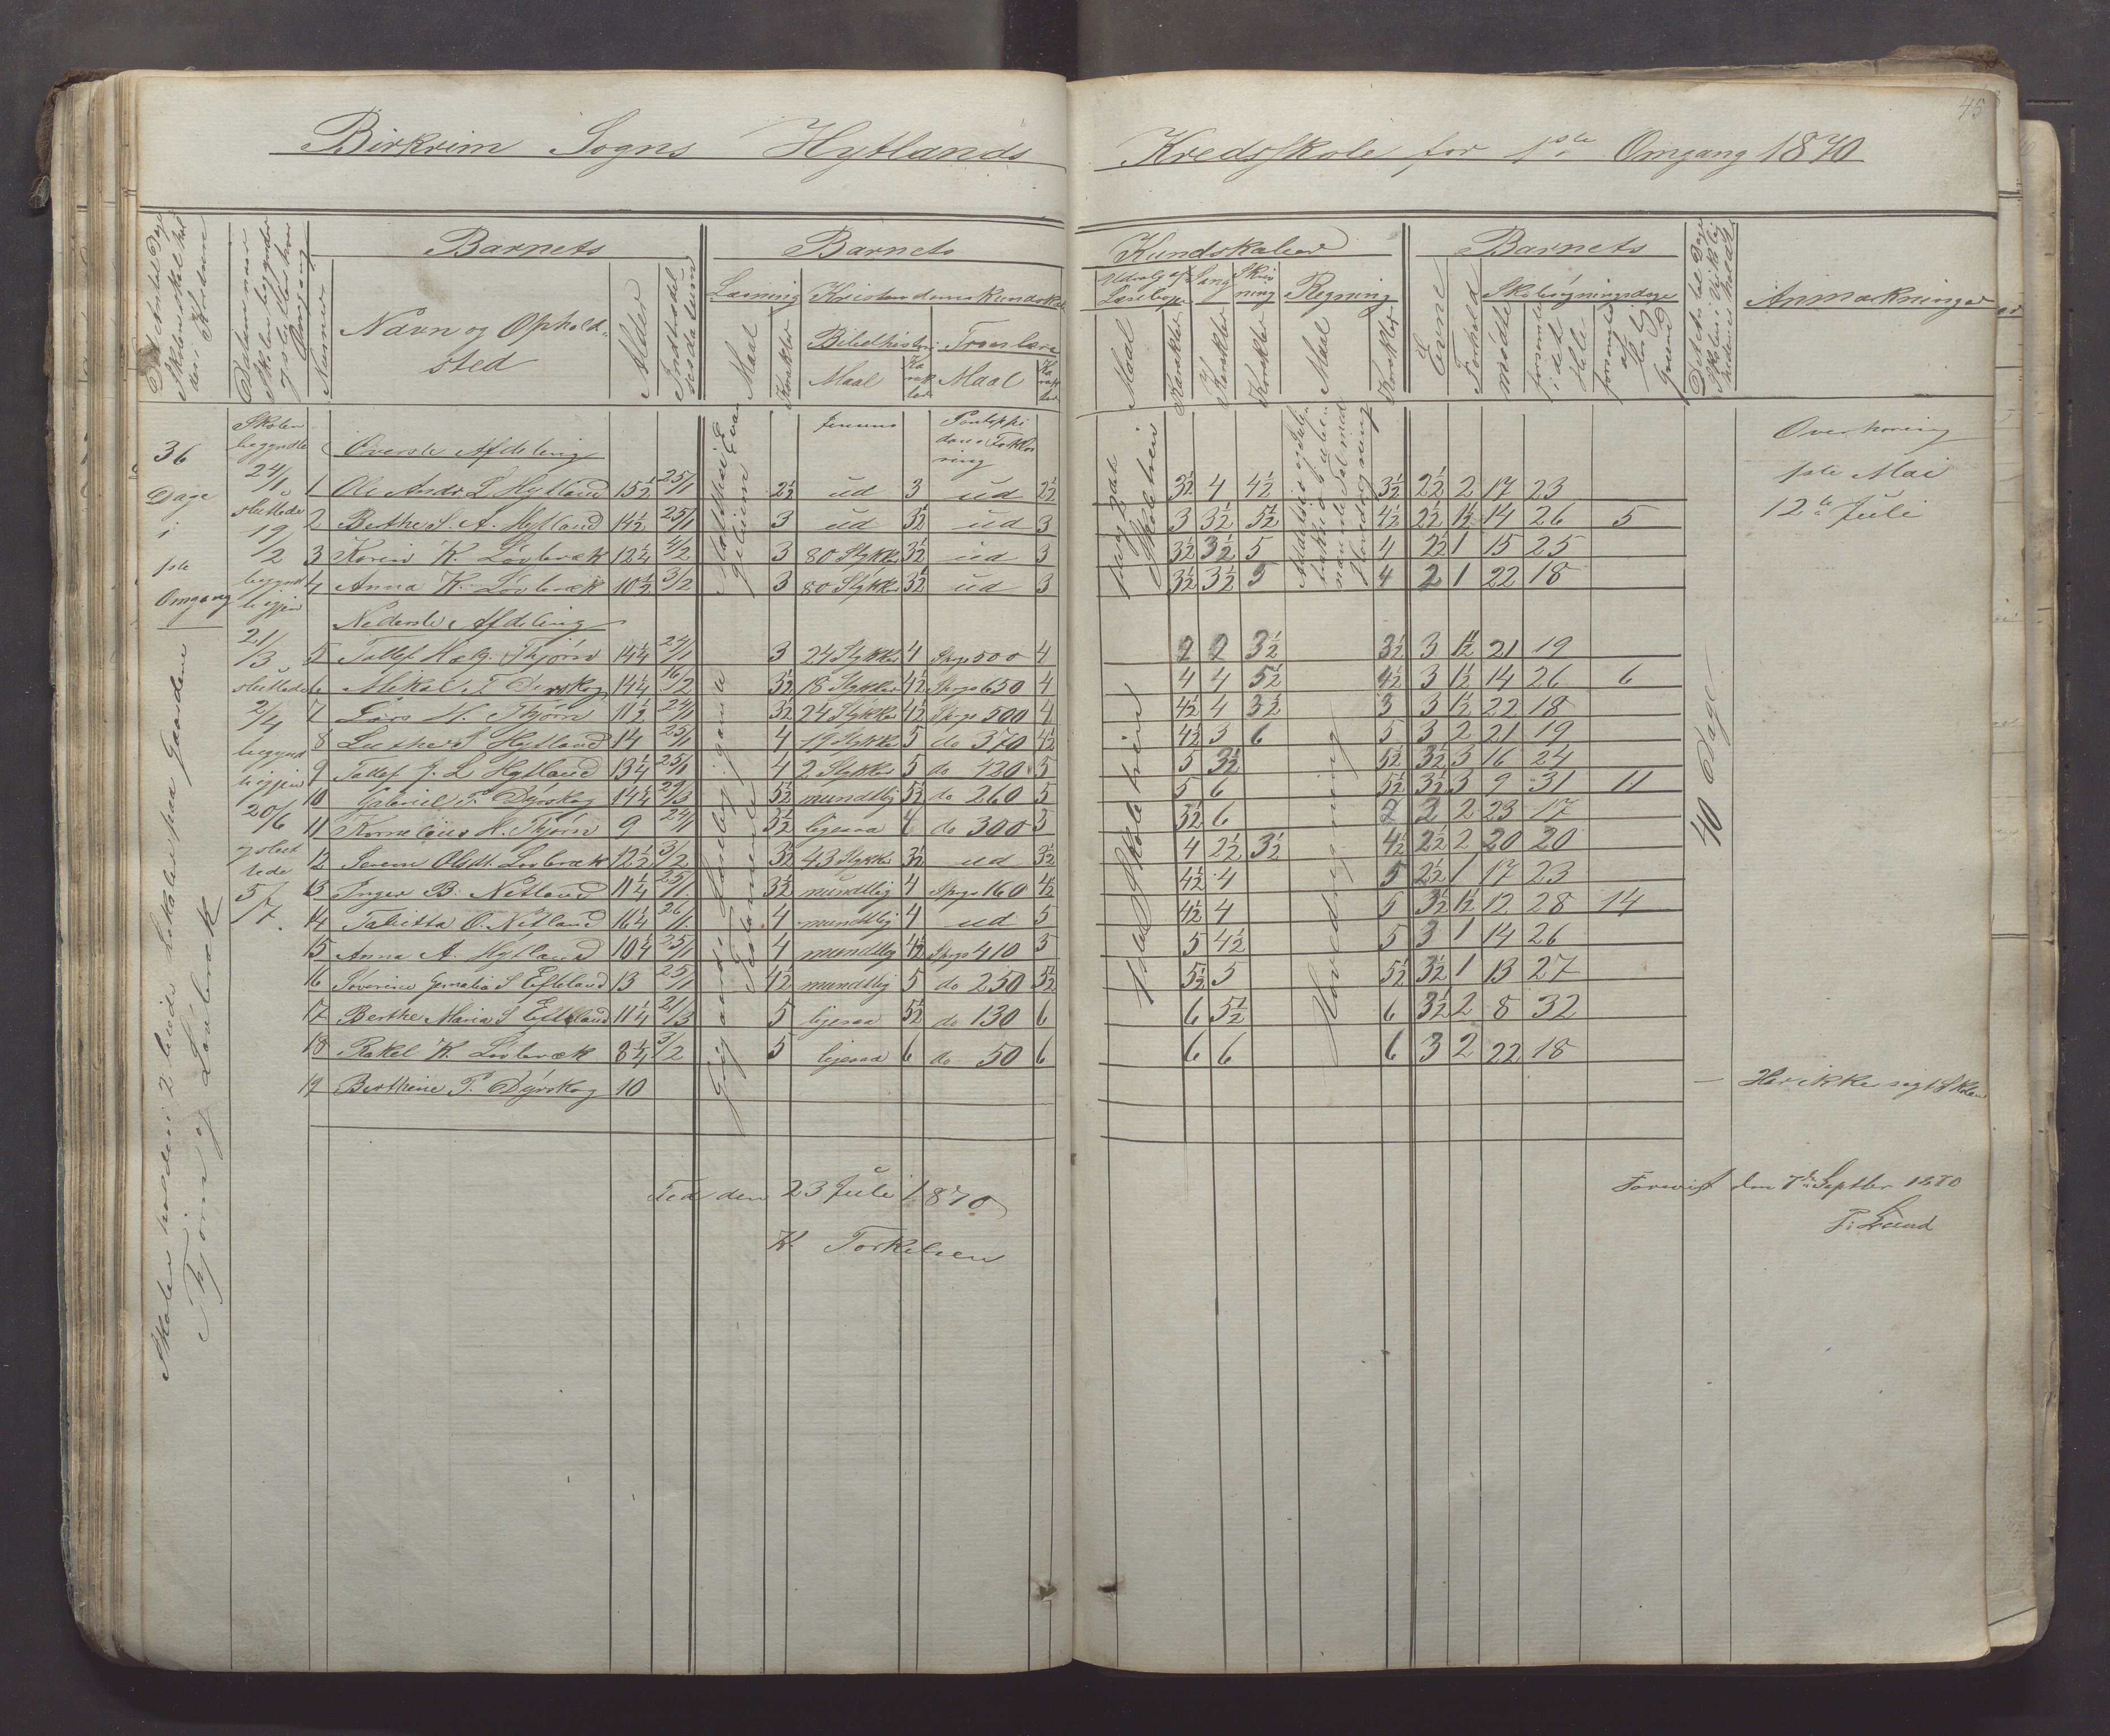 45
Birkrim Sogns Hytlands Kredsskole for 1ste Omgang 1870
Barnets Barnets Kundskaber Barnets
Nummer Navn og Opholdssted Alder Indtrædelsesdatum
Læsning Kristendomskundskab
Maal Karakter
Bibelhistorie Troeslære
Maal Karakter Maal Karakter
Udvalg af Læsebogen Sang Skrivning Regning
Maal Karakter Karakter Karakter Maal Karakter
Evne Forhold Skolesøgningsdage
mødte forsømte i det Hele forsømte af lovlig Grund
Anmærkninger
36 Dage i 1ste Omgang
Skolen begyndte 24/1 sluttede 19/2
begyndt igjen 21/3 sluttede 2/4
begyndt igjen 20/6 og sluttede 5/7.
Skolen holden i 2 leiede Lokaler paa Gaardene
Thjørn og Løvbræk
Øverste Afdeling
Matthæi Evangelium
Jensens Pontoppidans Forklaring
1 Ole Andr L Hytland 15½ 25/1 2½ ud 3 ud 2½ 3½ 4 4½ 3½ 2½ 2 17 23
2 Berthe S. A. Hytland 14½ 25/1 3 ud 3½ ud 3 3 3½ 5½ 4½ 2½ 1½ 14 26 5
3 Karin K. Løvbræk 12¼ 4/2 3 80 Stykker 3½ ud 3 3½ 3½ 5 4 2½ 1 15 25
4 Anna K. Løvbræk 10½ 3/2 3 80 Stykker 3½ ud 3 3½ 3½ 5 4 2 1 22 18
Nederste Afdeling
5 Tollef H. Thjørn 14¼ 24/1 3 24 Stykker 4 Spgs 500 4 2 2 3½ 3½ 3 1½ 21 19
6 Mekal T Dyrskog 14¼ 16/2 3½ 18 Stykker 4½ Spgs 650 4 4 4 5½ 4½ 3 1½ 14 26 6
7 Lars H. Thjørn 11½ 24/1 3½ 24 Stykker 4½ Spgs 500 4 4½ 4 3½ 3 3 1½ 22 18
8 Luther S Hytland 14 25/1 4 19 Stykker 5 do 370 4½ 4½ 5 6 5 3 2 21 19
9 Tollef G. L Hytland 13¼ 25/1 4 2 Stykker 5 do 420 5 5 3½ 5½ 3½ 3 16 24
10 Gabriel P. Dyrskog 14¼ 29/3 5½ mundtlig 5½ do 260 5 5 6 5½ 3½ 3 9 31 11
11 Kornelius H. Thjørn 9 24/1 3½ ligesaa 4 do 300 3 3½ 6 2 2 2 23 17
12 Serene Løvbræk 12½ 3/2 3½ 43 Stykker 3½ ud 3½ 4 2½ 3½ 4½ 2½ 2 20 20
13 Inger B. Netland 11¼ 25/1 3½ mundtlig 4 Spgs 160 4½ 4½ 4 5 2½ 1 17 23
14 Tabitta O. Netland 16¼ 26/1 4 mundtlig 4 ud 5 4½ 4 5 3½ 1½ 12 28 14
15 Anna A. Hytland 10¼ 25/1 4 mundtlig 4½ Spgs 410 5 5 4½ 5 3 1 14 26
16 Severine S Efteland 13 25/1 4½ mundtlig 5 do 250 5½ 5½ 5 5½ 3½ 1 13 27
17 Berthe Maria S Efteland 11¼ 21/3 5 ligesaa 5½ do 130 6 6 5½ 6 3½ 2 8 32
18 Rakel K. Løvbræk 8¼ 3/2 5 ligesaa 6 do 50 6 6 6 6 3 2 22 18
19 Berthine P. Dyrskog 10 — Har ikke søgt Skolen
Hovedregning
40 Dage
Overhøring
1ste Mai
12te Juli
Fed den 23 Juli 1870
K. Torkelsen
Forevist den 7de Septbr 1870
P: Lund